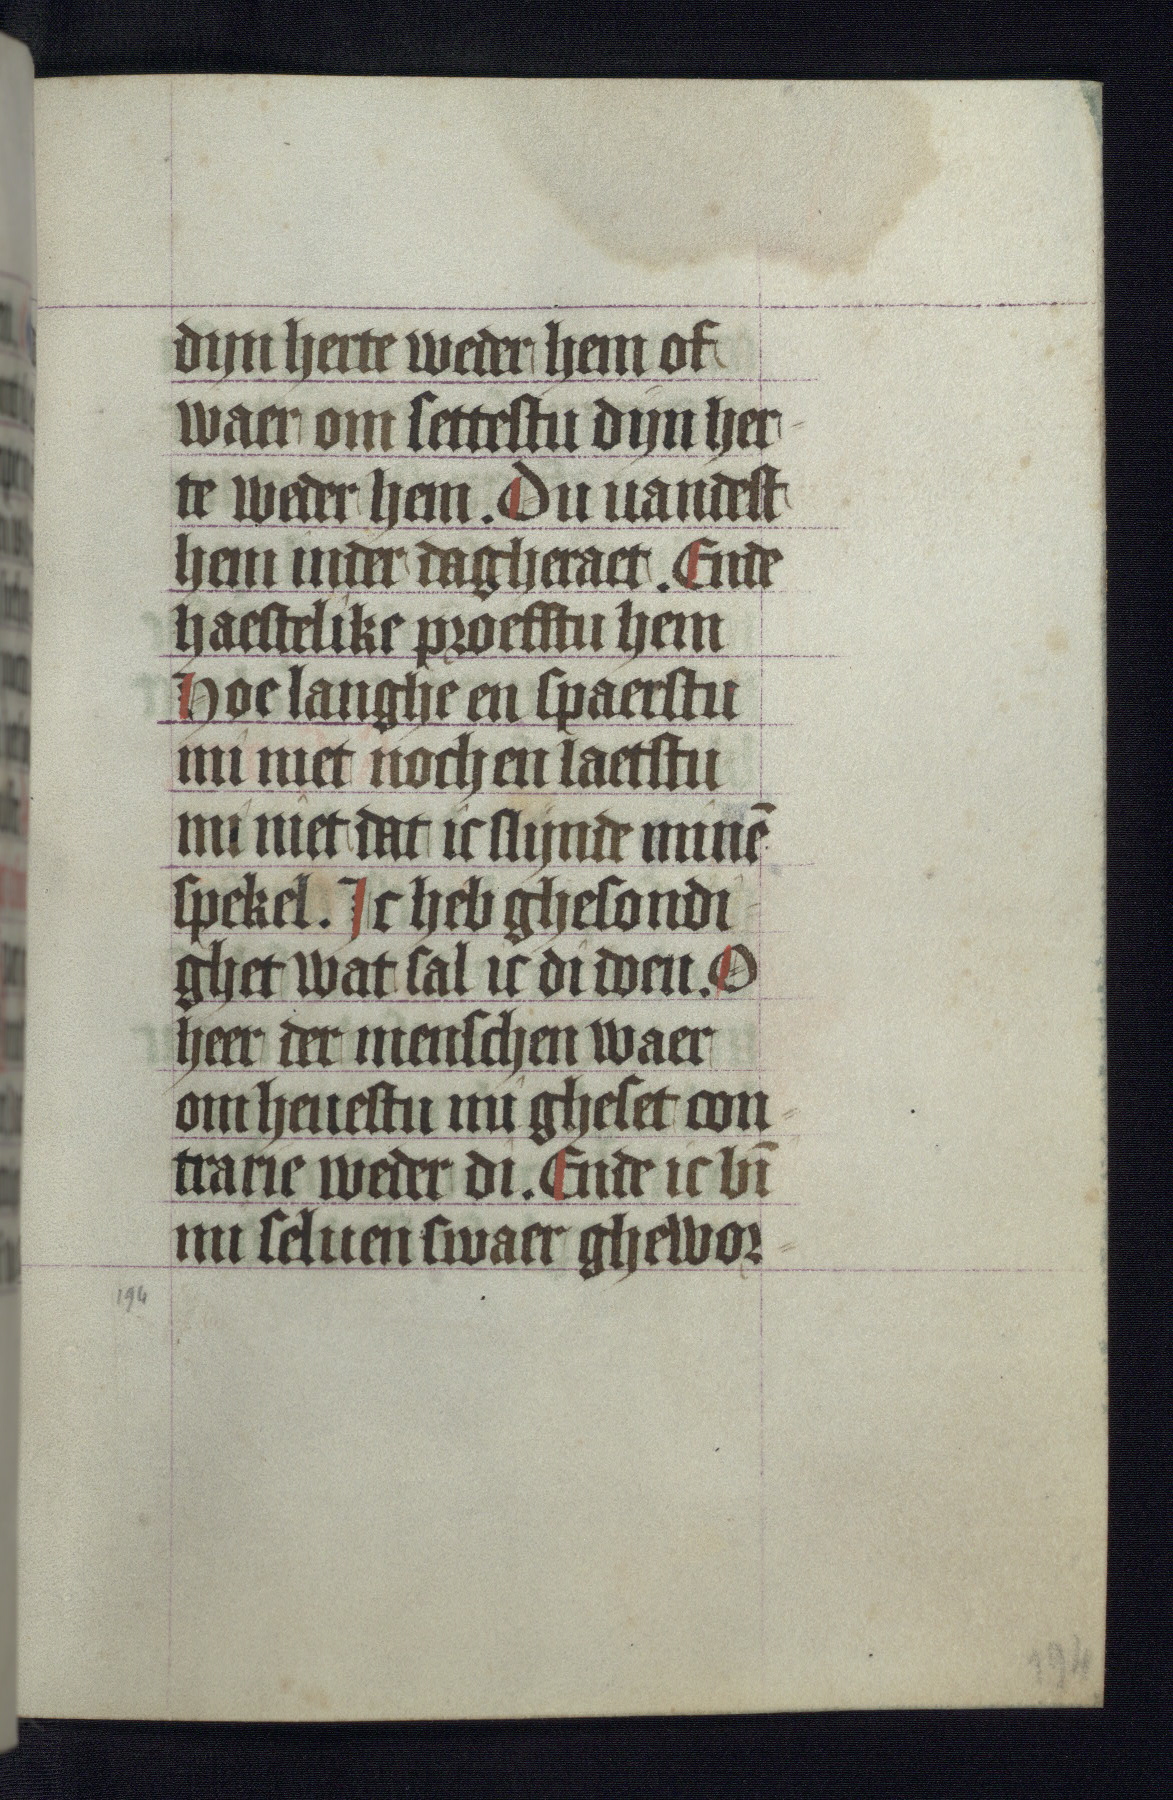 dijn herte weder hem of
waer om settestu dijn her-
te weder hem. Du uandest
hem inder dagheraet. Ende
haestelike proefstu hem
Hoe langhe en spaerstu
mi niet noch en laetstu
mi niet dat ic slijnde minē
spekel. Ic heb ghesondi-
ghet wat sal ic di doen. O
heer der menschen waer
om heuestu mi gheset con-
trarie weder di. Ende ic bī
mi seluen swaer ghewor-
194
194